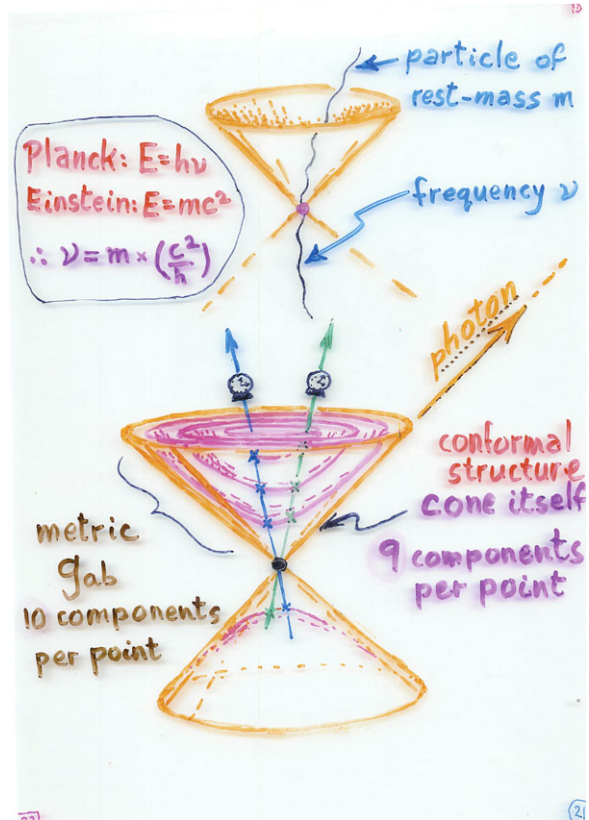 particle of
rest-mass m
Planck: E=hν
Einstein: E=mc²
∴ ν=m×(c²/h)
frequency ν
photon
conformal
structure
cone itself
9 components
per point
metric
gab
10 components
per point